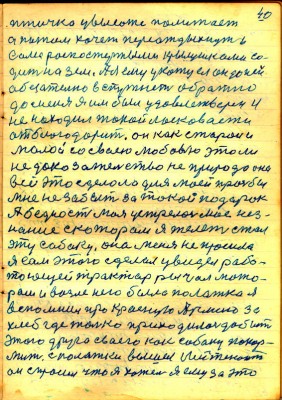 40
птичка увысоте политает
а патом хочет переотдыхнуть и
само роспостертыми крылушками со-
дит на зем.
обезателно вступит обратно
до меня я им был удовелетверен и
не находил такой ласковасти
отблогодарит, он как старой и
малой со своею любовью это ли
не доказателство не природа она
всё это сделола для моей прозбы
мне не забыть за такой подарок
А бедность моя устрелог мое нез-
нание с каторам я желет стал
эту собаку, она меня не просила
я сам этого сделал увидел рабо-
тоющей трактар рычал мото-
рам и возле него была полатка я
вспомнил про Красную Армию за
хлеб где только приходилос добыт
этого друга своего как собаку покор-
мит, с полатки вышел Лейтенант
он спросил что я хотел я ему за это